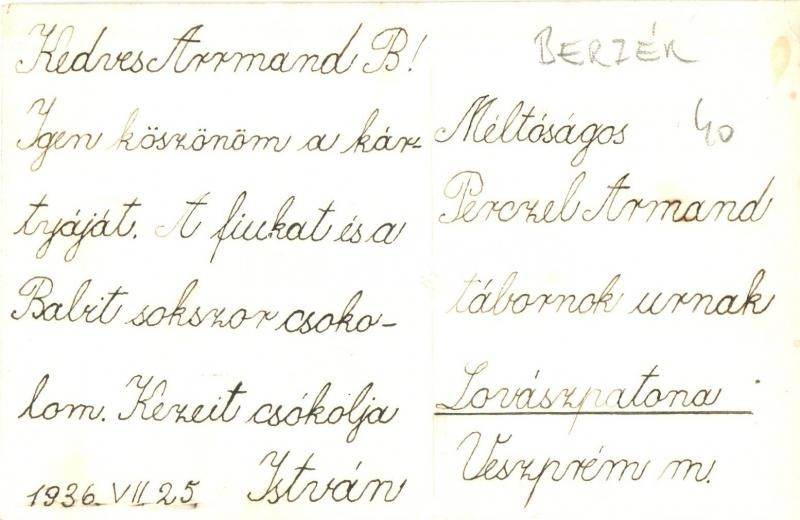 Kedves Arrmand B!
Igen köszönöm a kár-
tyáját. A fiukat és a
Babit sokszor csoko-
lom. Kezeit csókolja
István
1936. VII 25.
BERZÉR
40
Méltóságos
Perczel Armand
tábornok urnak
Lovászpatona
Veszprém m.